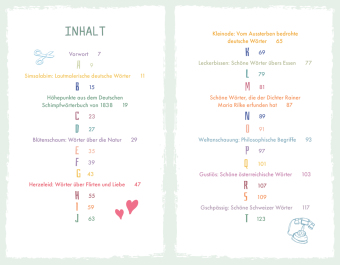 INHALT
Vorwort 7
A 9
Einsuldern: Lautmalerische deutsche Wörter 11
B 15
Höhepunkte aus dem Deutschen
Schimpfwörterbuch von 1838 19
C 23
D 27
Blütenschaum: Wörter über die Natur 29
E 35
F 39
G 43
Herzeleid: Wörter über Flirten und Liebe 47
H 55
I 59
J 63
Kleinode: Vom Aussterben bedrohte
deutsche Wörter 65
K 69
Leckerbissen: Schöne Wörter übers Essen 77
L 79
M 81
Schöne Wörter, die der Dichter Rainer
Maria Rilke erfunden hat 87
N 89
O 91
Weltanschauung: Philosophische Begriffe 93
P 97
Q 101
Gustiös: Schöne österreichische Wörter 103
R 107
S 109
Gschpässig: Schöne Schweizer Wörter 117
T 123